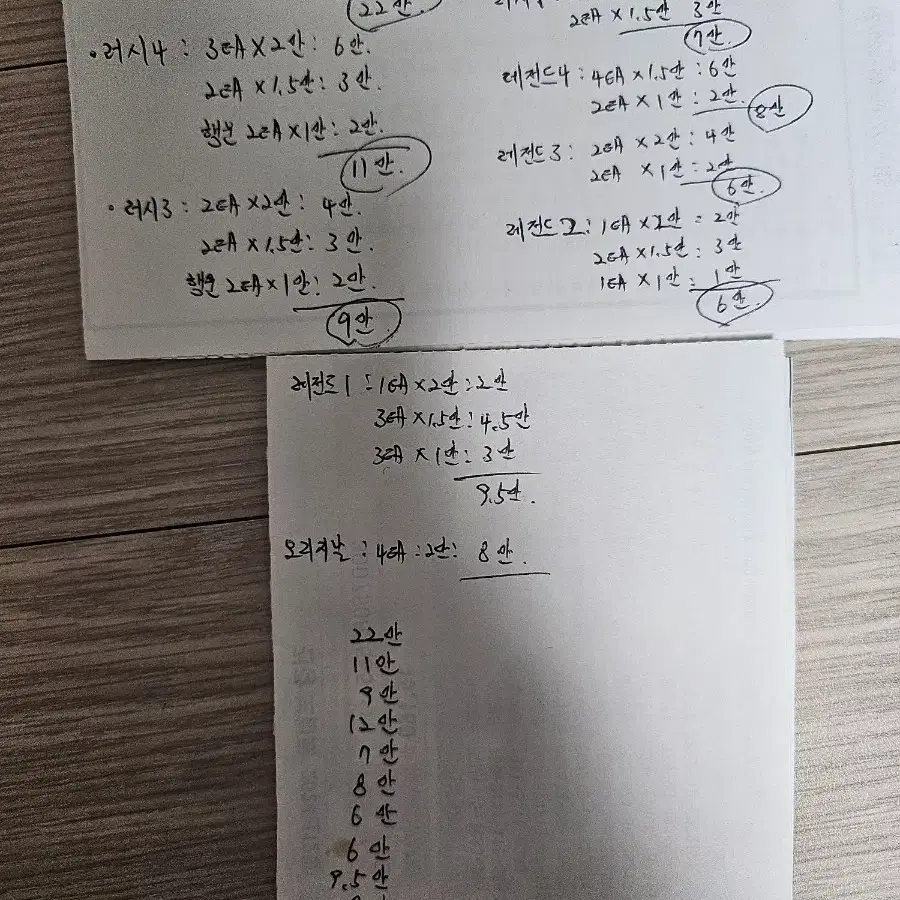 22만.
• 러시4 : 3EA×2만: 6만.
2EA×1.5만: 3만.
행운 2EA×1만: 2만.
11만.
• 러시3 : 2EA×2만: 4만.
2EA×1.5만: 3만.
행운 2EA×1만: 2만.
9만.
2EA×1.5만 3만
7만.
레전드4 : 4EA×1.5만 : 6만
2EA×1만 : 2만.
8만
레전드3 : 2EA×2만 : 4만
2EA×1만 : 2만
6만.
레전드2 : 1EA×2만 = 2만
2EA×1.5만 : 3만
1EA×1만 : 1만
6만.
레전드1 : 1EA×2만 : 2만
3EA×1.5만 : 4.5만
3EA×1만 : 3만
9.5만.
오리지날 : 4EA : 2만 : 8만.
22만
11만
9만
12만
7만
8만
6만
6만
9.5만